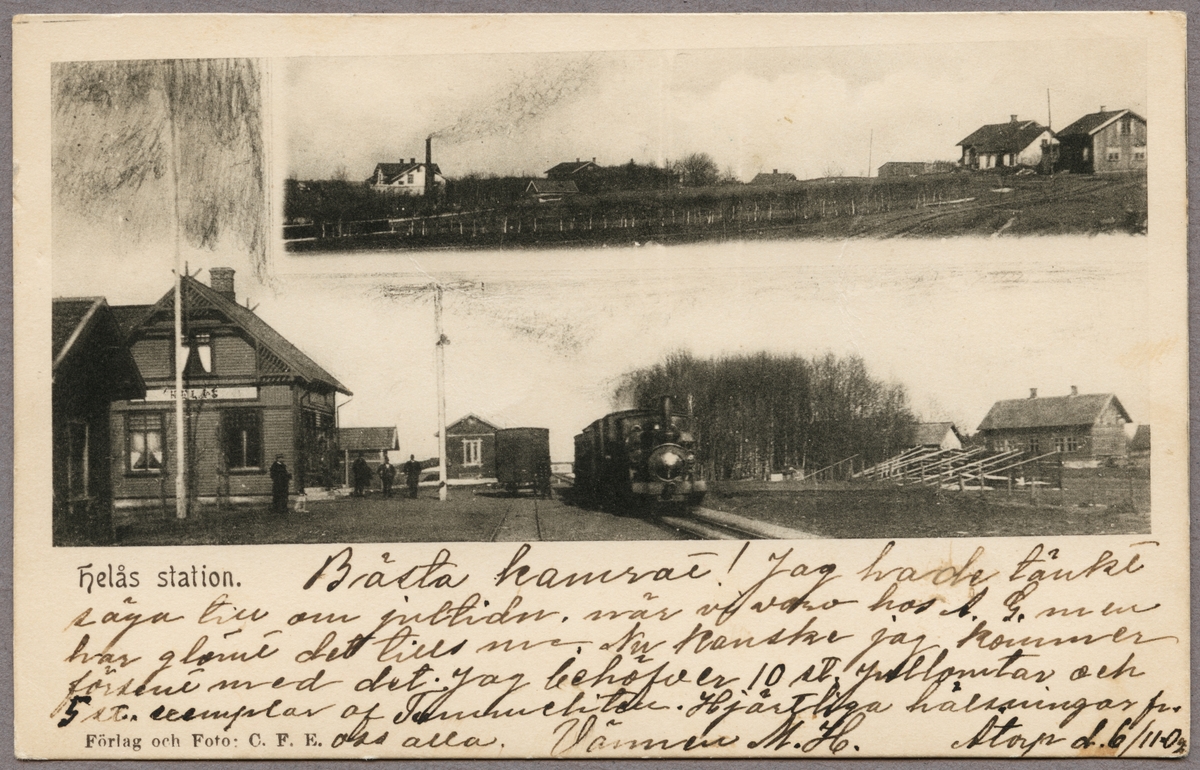 HELÅS
Helås station.
Bästa kamrat! Jag hade tänkt
säga till om jultidn. när vi voro hos A. G. men
har glömt det tills nu. Nu kanske jag kommer
försent med det. Jag behöfver 10 st. Jultomtar och
5 st. exemplar af Hjärtliga hälsningar fr.
oss alla. Vännen M. H. Atorp d. 6/11-09
Förlag och Foto: C. F. E.